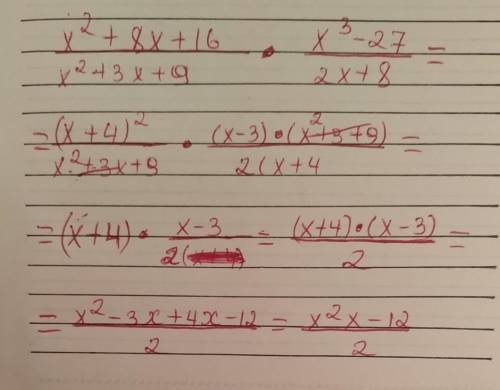 x² + 8x + 16 / x² + 3x + 9 • x³ - 27 / 2x + 8 =
= (x + 4)² / x² + 3x + 9 • (x - 3) • (x² + 3 + 9) / 2(x + 4 =
= (x + 4) • x - 3 / 2( = (x + 4) • (x - 3) / 2 =
= x² - 3x + 4x - 12 / 2 = x² x - 12 / 2